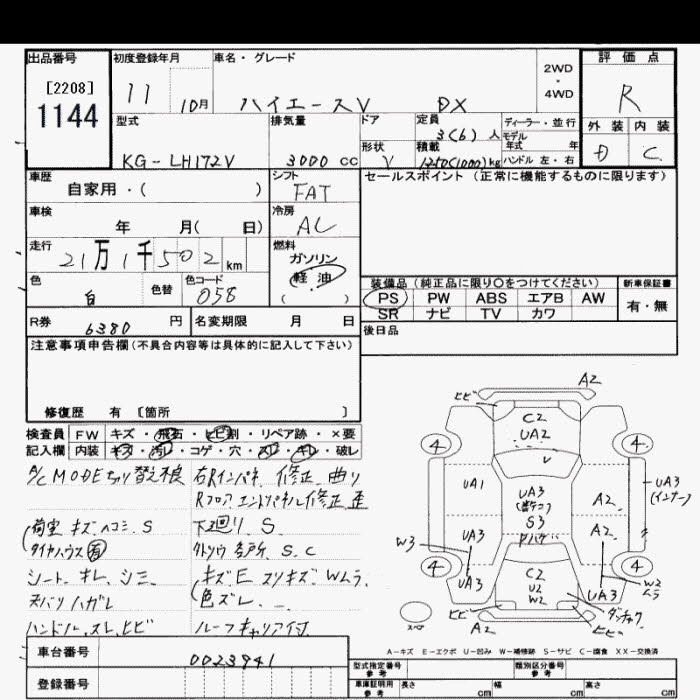 出品番号 初度登録年月 車名・グレード 2WD・4WD 評価点
[2208]
1144
11 10月 ハイエースV DX R
型式 排気量 ドア 定員 ディーラー・並行 外装 内装
3(6)人 モデル年式 年
KG-LH172V 3000cc 形状 V 積載 1250(1000)kg ハンドル 左・右 D C
車歴 シフト セールスポイント(正常に機能するものに限ります)
自家用・( ) FAT
車検 冷房
年 月( 日) AC
走行 燃料
21万1千502km ガソリン
軽油
( )
色 色替 色コード
白 058
装備品(純正品に限り○をつけてください) 新車保証書
PS PW ABS エアB AW 有・無
SR ナビ TV カワ
R券 6380円 名変期限 月 日
後日品
注意事項申告欄(不具合内容等は具体的に記入して下さい)
修復歴 有 [箇所 ]
検査員 FW キズ・飛石・ヒビ割・リペア跡・×要
記入欄 内装 キズ・汚レ・コゲ・穴・スレ・キレ・破レ
A/C MODE切り替え不良 右Rインパネ 修正 曲り
Rフロア エンドパネル修正 歪
荷室 キズ ヘコミ S 下廻り S
タイヤハウス 有 各所 S.C
シート キレ シミ キズE スリキズ Wムラ
天バリ ハガレ 色ズレ
ハンドル スレ ヒビ ルーフキャリア付
A2
ヒビ
C2
UA2
4 4
UA1 UA3 A2 UA3
S3
UA3 A2
W3
UA3 C2 UA3 W2
ムラ
4 U2 4
W2
ヒビ A2 ヒビ
A-キズ E-エクボ U-凹み W-補修跡 S-サビ C-腐食 XX-交換済
車台番号 0023941
型式指定番号 参考 類別区分番号 参考
登録番号
車庫証明用 参考 長さ cm 幅 cm 高さ cm